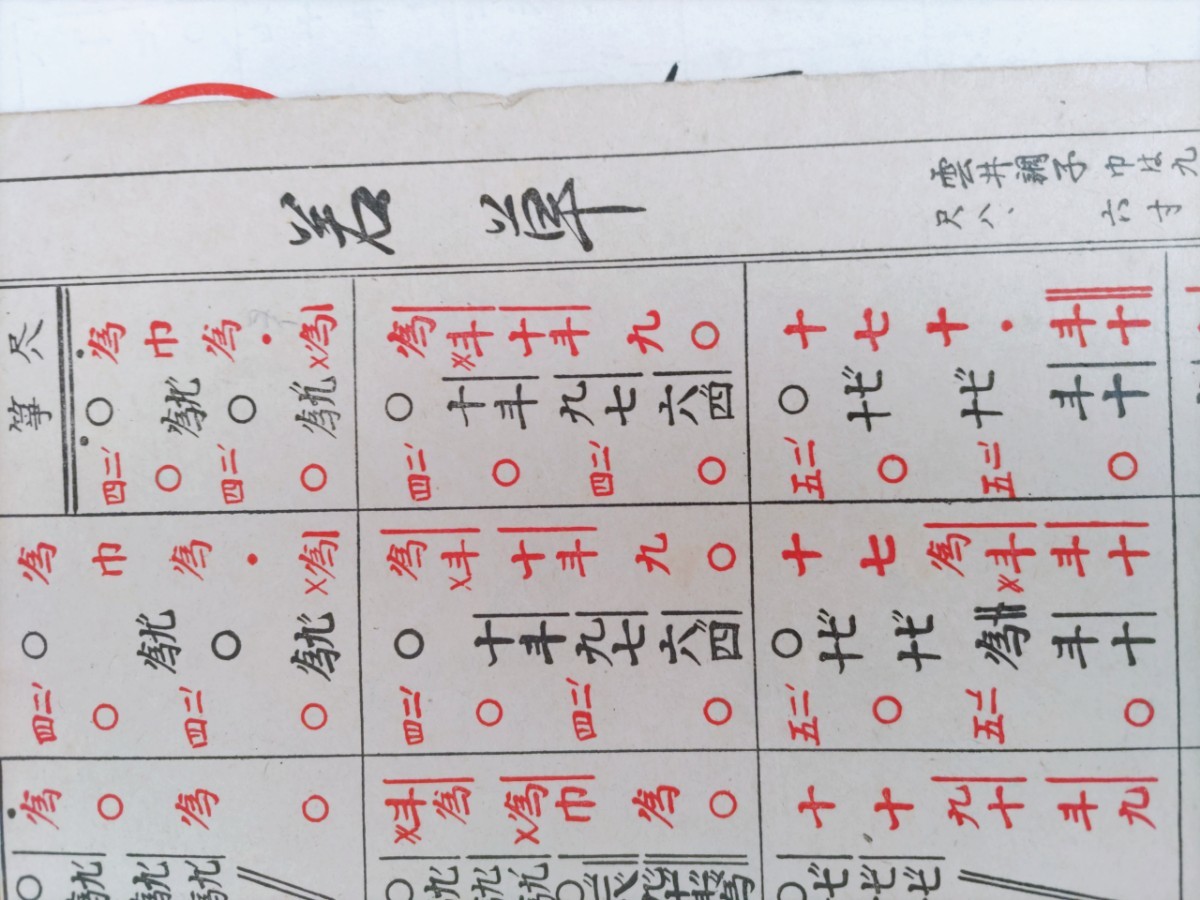 若草
雲井調子 巾は九
尺八、六寸
尺
箏
為 巾 為 ・ ×為 為 ×斗 十 斗 九 ○ 十 七 十 ・ 斗 十
○ 為九 ○ 為九 ○ 十 斗 九 七 六 四 ○ 十七 十七 斗 十
四二 ○ 四二 ○ 四二 ○ 四二 ○ 五二 ○ 五二 ○
為 巾 為 ・ ×為 為 ×斗 十 斗 九 ○ 十 七 為 ×斗 斗 十
○ 為九 ○ 為九 ○ 十 斗 九 七 六 四 ○ 十七 十七 為 斗 十
四二 ○ 四二 ○ 四二 ○ 四二 ○ 五二 ○ 五二 ○
為 ○ 為 ○ ×斗 為 ×為 巾 為 ○ 十 十 九 十 斗 九